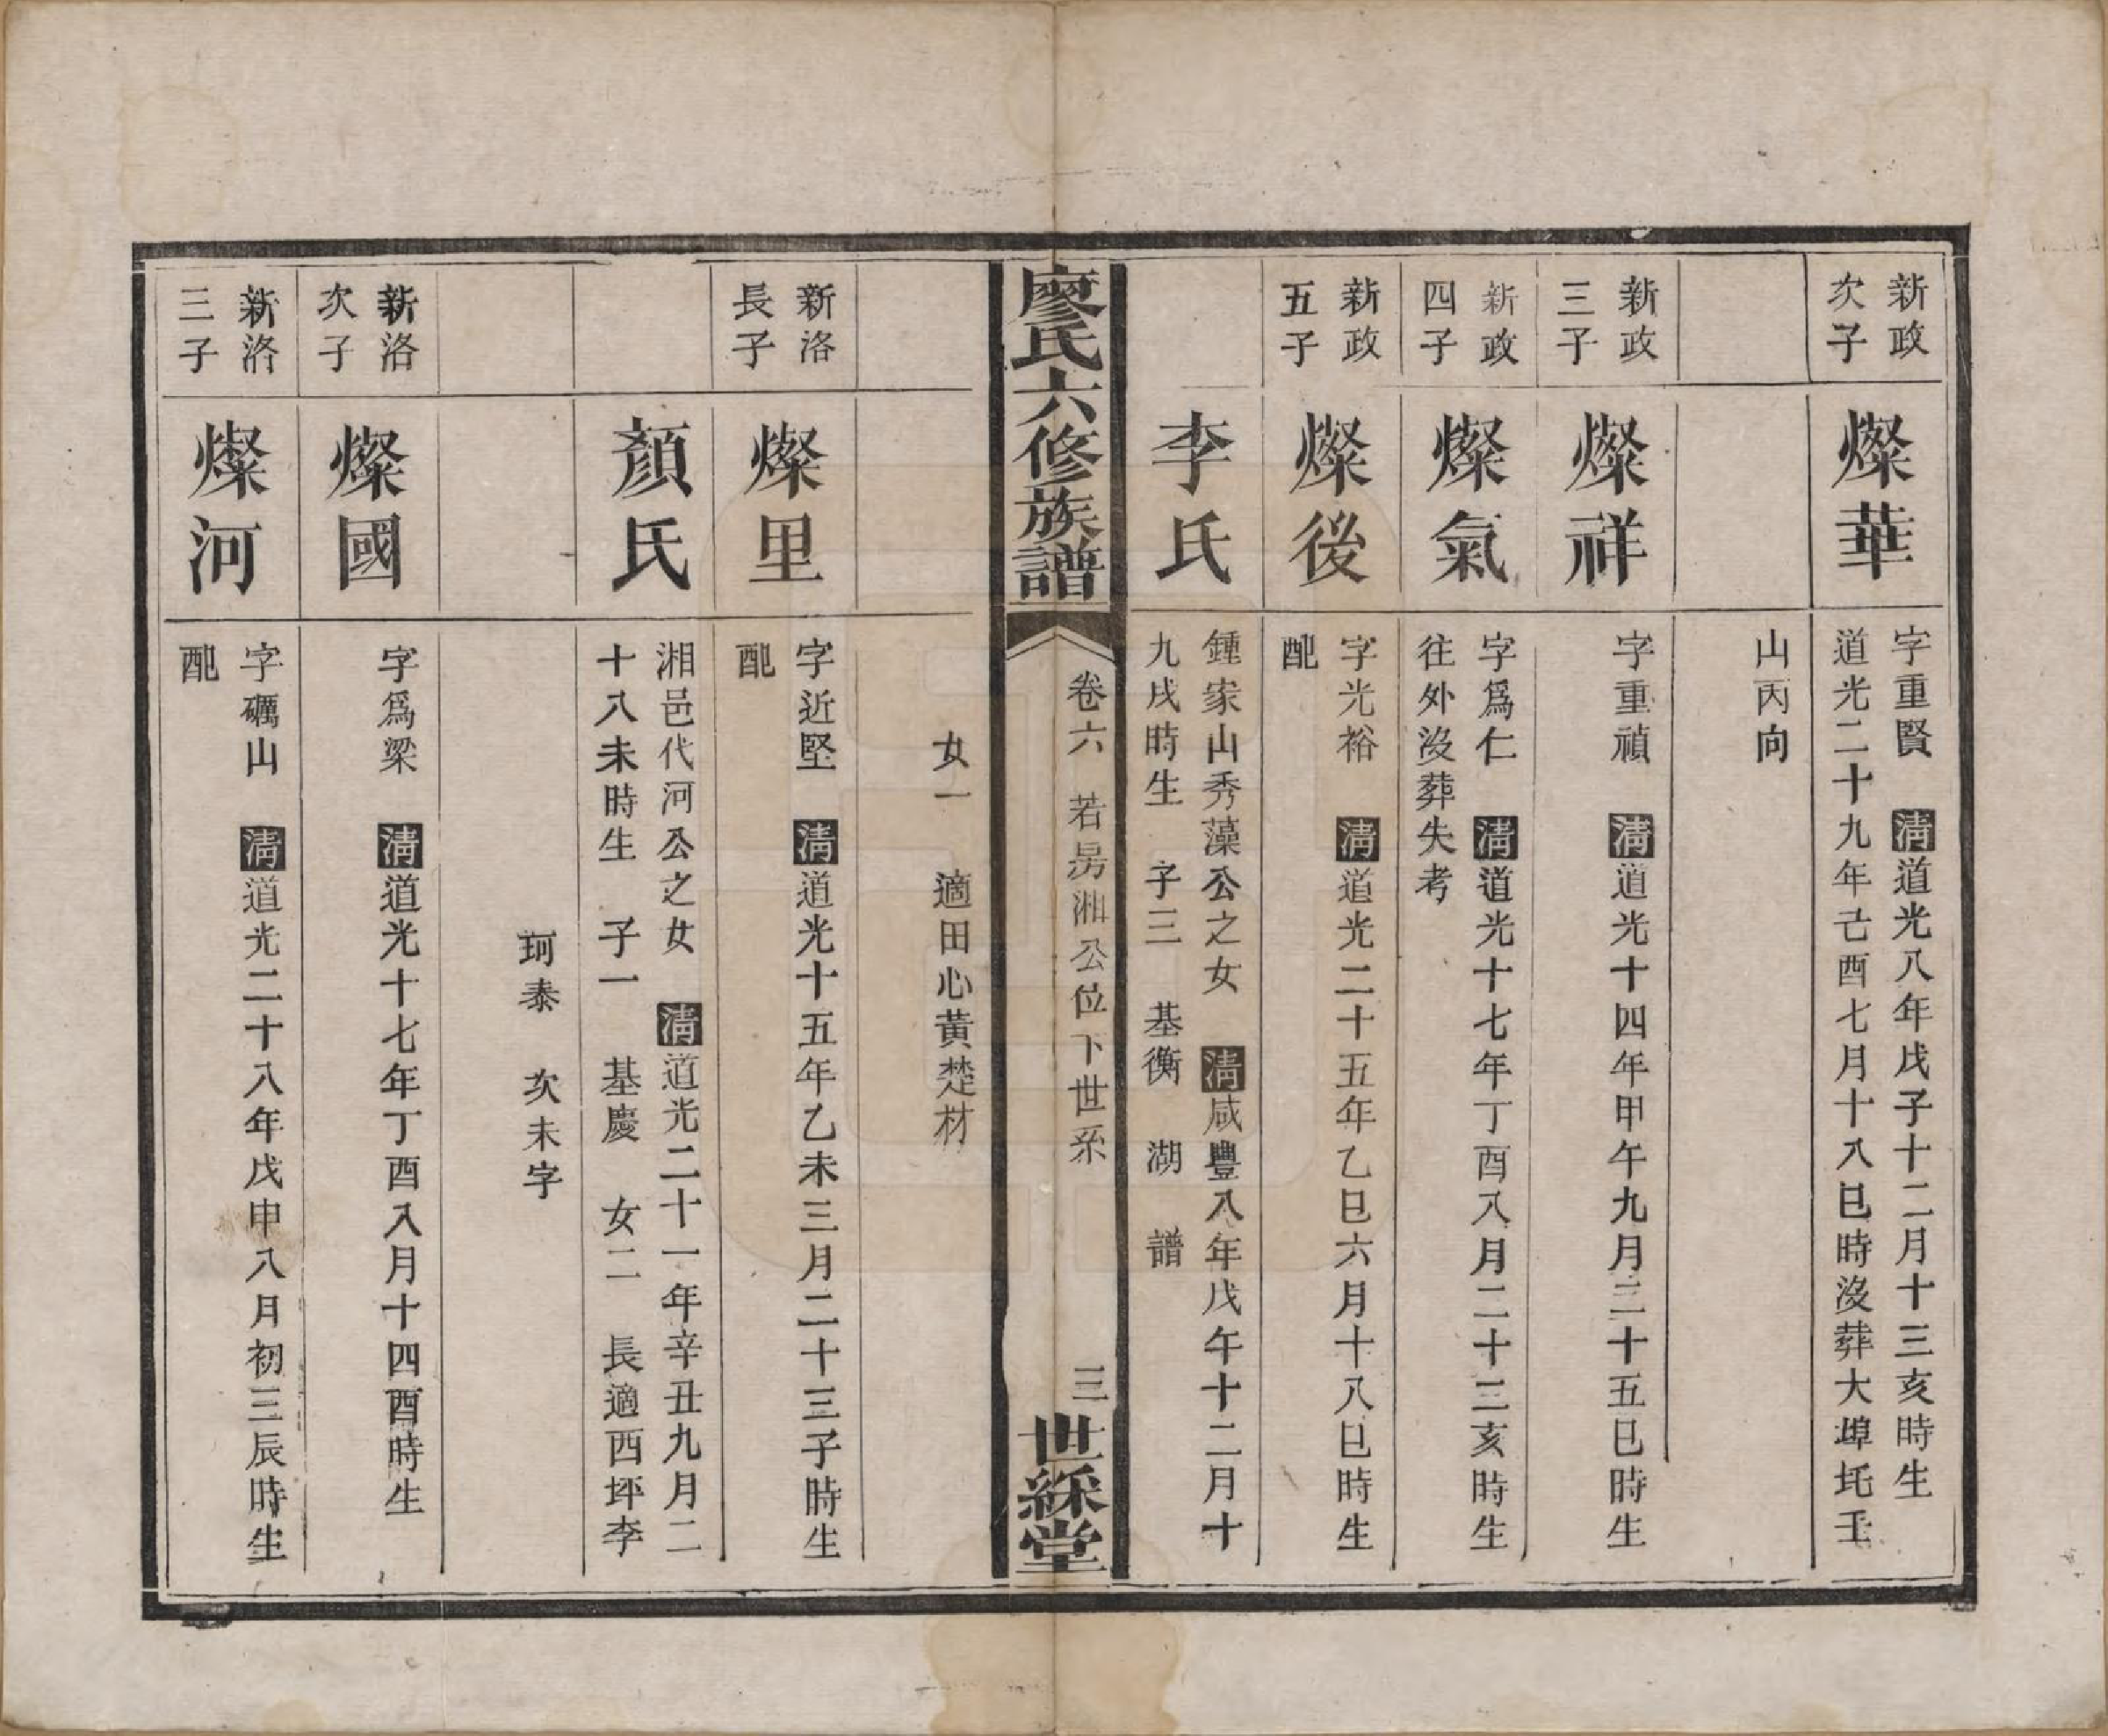 新政
次子
燦華
字重賢　清道光八年戊子十二月十三亥時生
道光二十九年己酉七月十八巳時沒葬大埠圫壬
山丙向
新政
三子
燦祥
字重禎　清道光十四年甲午九月二十五巳時生
新政
四子
燦氣
字爲仁　清道光十七年丁酉八月二十三亥時生
往外沒葬失考
新政
五子
燦後
字光裕　清道光二十五年乙巳六月十八巳時生
配
李氏
鍾家山秀藻公之女　清咸豐八年戊午十二月十
九戌時生　子三　基衡　湖　譜
廖氏六修族譜
卷六　若昺湘公位下世系
三
世綵堂
女一　適田心黃楚材
新洛
長子
燦里
字近堅　清道光十五年乙未三月二十三子時生
配
顏氏
湘邑代河公之女　清道光二十一年辛丑九月二
十八未時生　子一　基慶　女二　長適西坪李
珂泰　次未字
新洛
次子
燦國
字爲梁　清道光十七年丁酉八月十四酉時生
新洛
三子
燦河
字礪山　清道光二十八年戊申八月初三辰時生
配